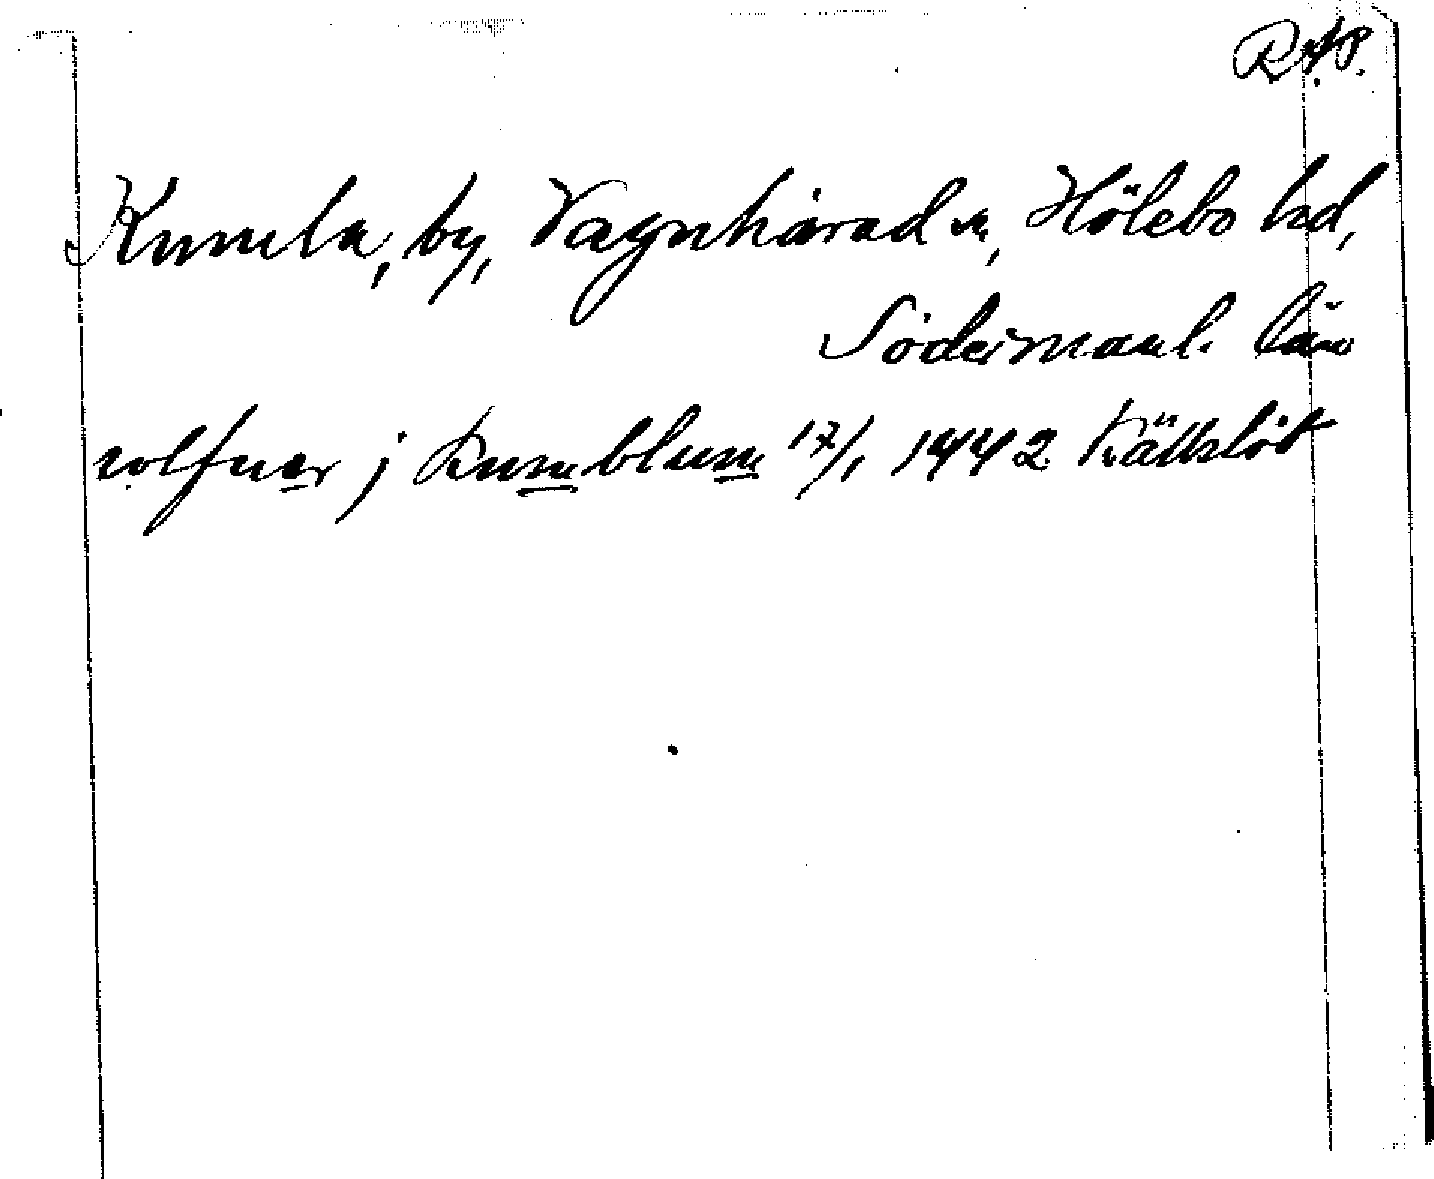 R.A.P.
Kumla, by, Vagnhärad sn, Hölebo hd,
Södermanl. län
rolfuer j Kumblum 17/1 1442 Källslöt